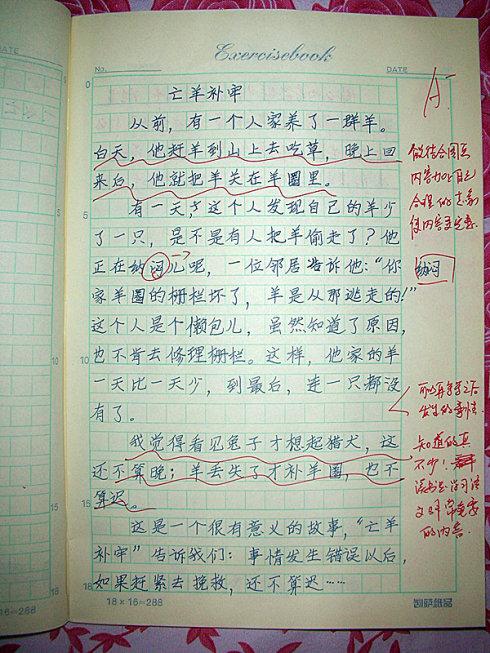 Exercisebook
No.
DATE
A-
亡羊补牢
从前，有一个人家养了一群羊。
白天，他赶羊到山上去吃草，晚上回
来后，他就把羊关在羊圈里。
有一天，这个人发现自己的羊少
了一只，是不是有人把羊偷走了？他
正在纳闷儿呢，一位邻居告诉他：“你
家羊圈的栅栏坏了，羊是从那逃走的！”
这个人是个懒包儿，虽然知道了原因，
也不肯去修理栅栏。这样，他家的羊
一天比一天少，到最后，连一只都没
有了。
我觉得看见兔子才想起猎犬，这
还不算晚；羊丢失了才补羊圈，也不
算迟。
这是一个很有意义的故事，“亡羊
补牢”告诉我们：事情发生错误以后，
如果赶紧去挽救，还不算迟……
能结合图画
内容加上自己
合理的想象
使内容更完整
纳闷
发生的事情
知道的真
不少！
的内容
0
5
10
15
18
18×16=288
16=288
DATE